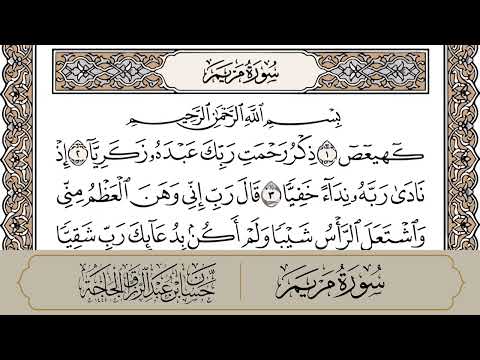 سُورَةُ مَرْيَمَ
بِسْمِ ٱللَّهِ ٱلرَّحْمَٰنِ ٱلرَّحِيمِ
كٓهيعٓصٓ ١ ذِكْرُ رَحْمَتِ رَبِّكَ عَبْدَهُۥ زَكَرِيَّآ ٢ إِذْ
نَادَىٰ رَبَّهُۥ نِدَآءً خَفِيًّا ٣ قَالَ رَبِّ إِنِّي وَهَنَ ٱلْعَظْمُ مِنِّي
وَٱشْتَعَلَ ٱلرَّأْسُ شَيْبًا وَلَمْ أَكُنۢ بِدُعَآئِكَ رَبِّ شَقِيًّا
سُورَةُ مَرْيَمَ
حَسَّان بن عبد الرزاق